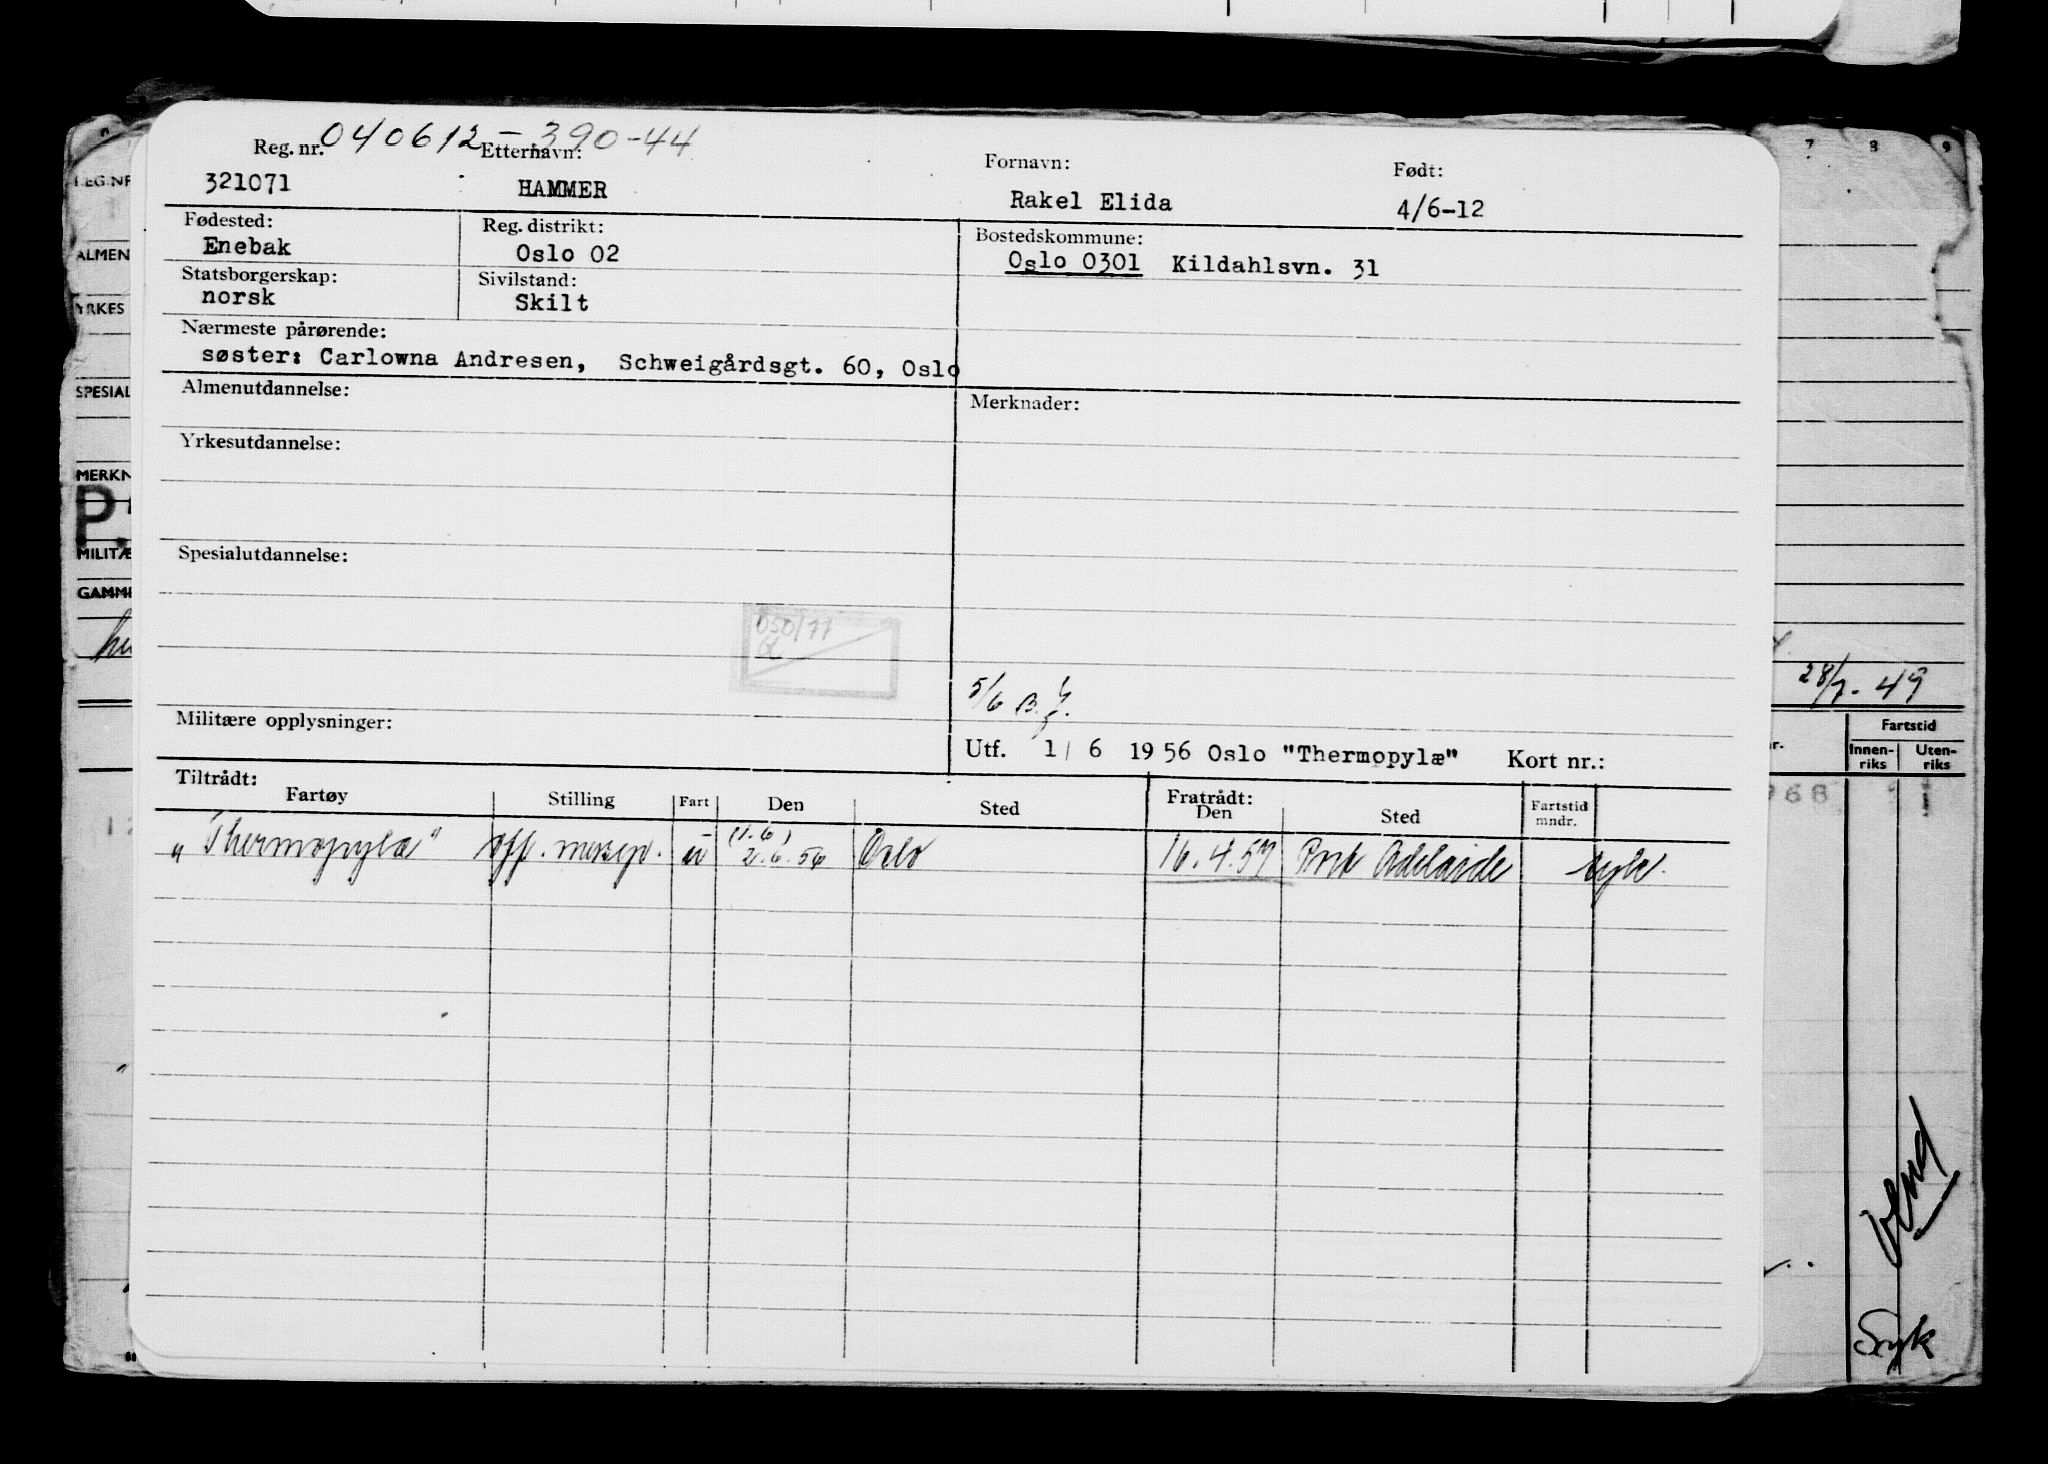 040612-390-44
Reg. nr. Etternavn: Fornavn: Født:
321071 HAMMER Rakel Elida 4/6-12
Fødested: Reg. distrikt: Bostedskommune:
Enebak Oslo 02 Oslo 0301 Kildahlsvn. 31
Statsborgerskap: Sivilstand:
norsk Skilt
Nærmeste pårørende:
søster: Carlowna Andresen, Schweigårdsgt. 60, Oslo
Almenutdannelse: Merknader:
Yrkesutdannelse:
Spesialutdannelse:
050/77
5/6 B.
Militære opplysninger:
Utf. 1/6 1956 Oslo "Thermopylæ" Kort nr.:
Tiltrådt: Fratrådt:
Fartøy Stilling Fart Den Sted Den Sted Fartstid mndr.
(1.6)
"Thermopylæ" off. messep. u 2.6.56 Oslo 16.4.57 Port Adelaide syk.
REG.NR
ALMEN
YRKES
SPESIAL
MERKN
P.
MILITÆ
GAMME
7 8 9
28/7-49
Fartstid
Innen-
riks
Uten-
riks
968
12
Vend
Syk